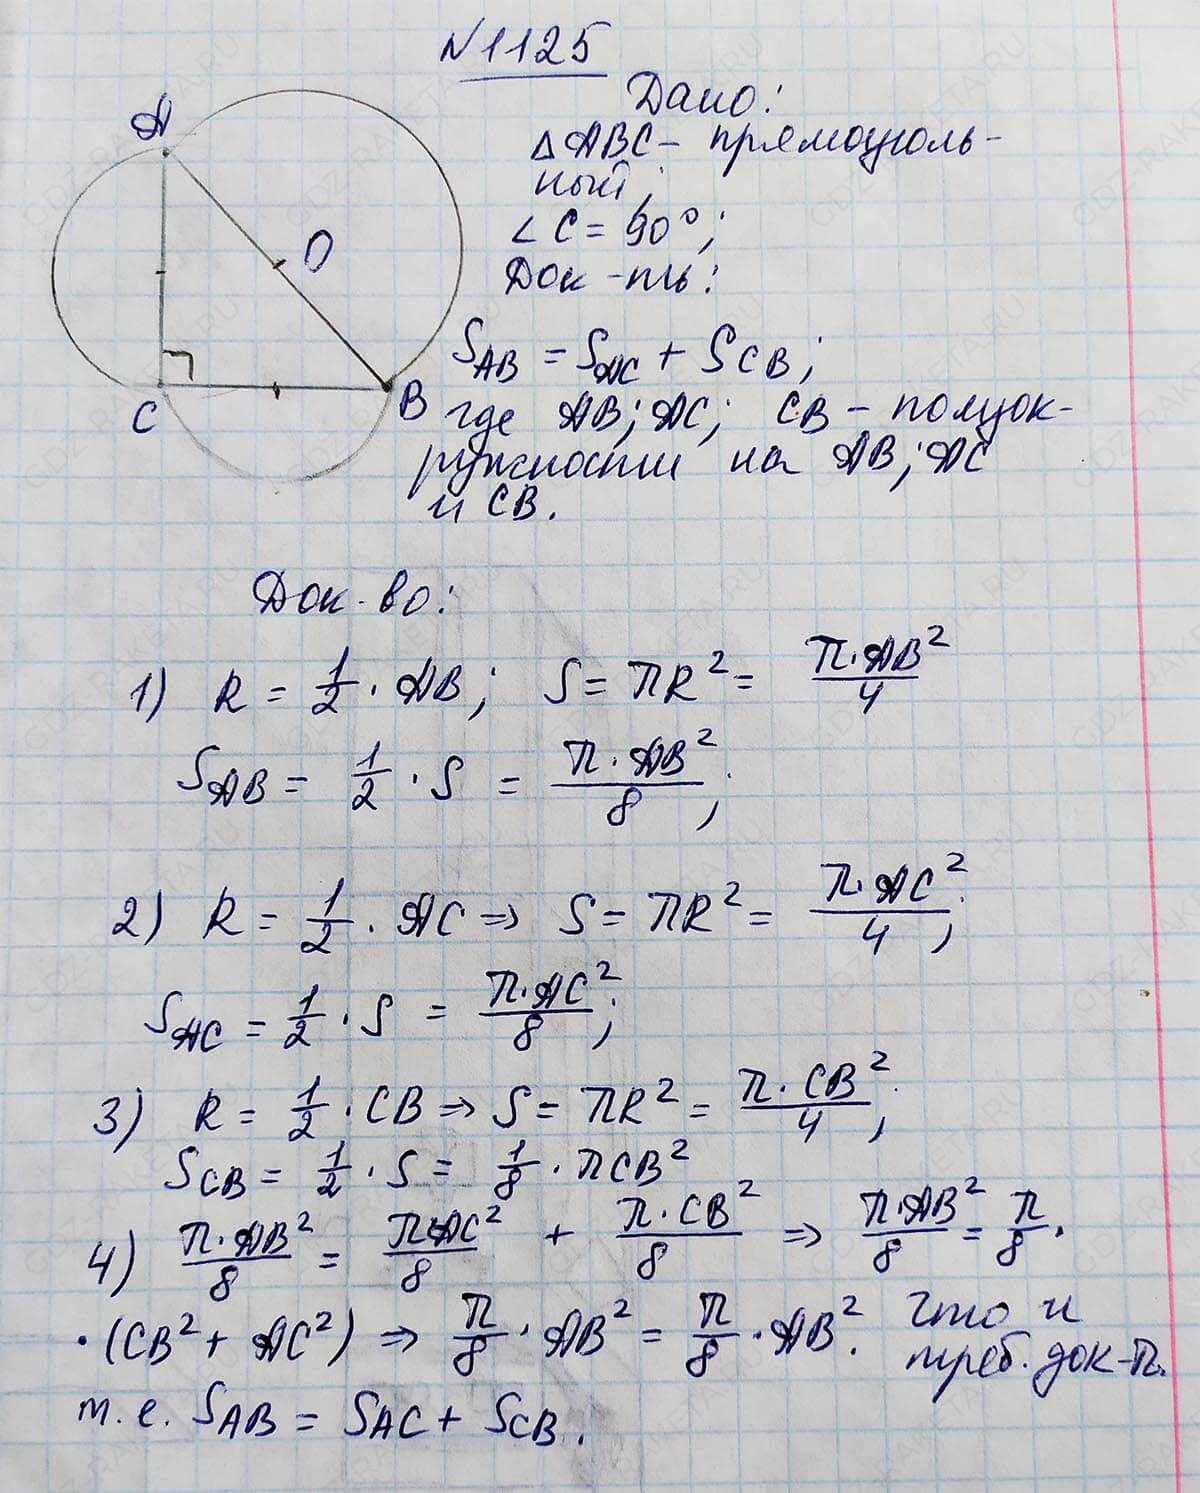 №1125
Дано:
△ABC - прямоуголь-
ный;
∠C = 90°;
Док-ть:
S_AB = S_AC + S_CB;
где AB; AC; CB - полуок-
ружности на AB; AC
и CB.
A
O
C
B
Док-во:
1) R = 1/2 · AB; S = πR² = π·AB²/4
S_AB = 1/2 · S = π·AB²/8;
2) R = 1/2 · AC ⇒ S = πR² = π·AC²/4;
S_AC = 1/2 · S = π·AC²/8;
3) R = 1/2 · CB ⇒ S = πR² = π·CB²/4;
S_CB = 1/2 · S = 1/8 · πCB²
4) π·AB²/8 = π·AC²/8 + π·CB²/8 ⇒ π·AB²/8 = π/8 ·
· (CB² + AC²) ⇒ π/8 · AB² = π/8 · AB². Что и
треб. док-ть.
т.е. S_AB = S_AC + S_CB.
GDZ-RAKETA.RU